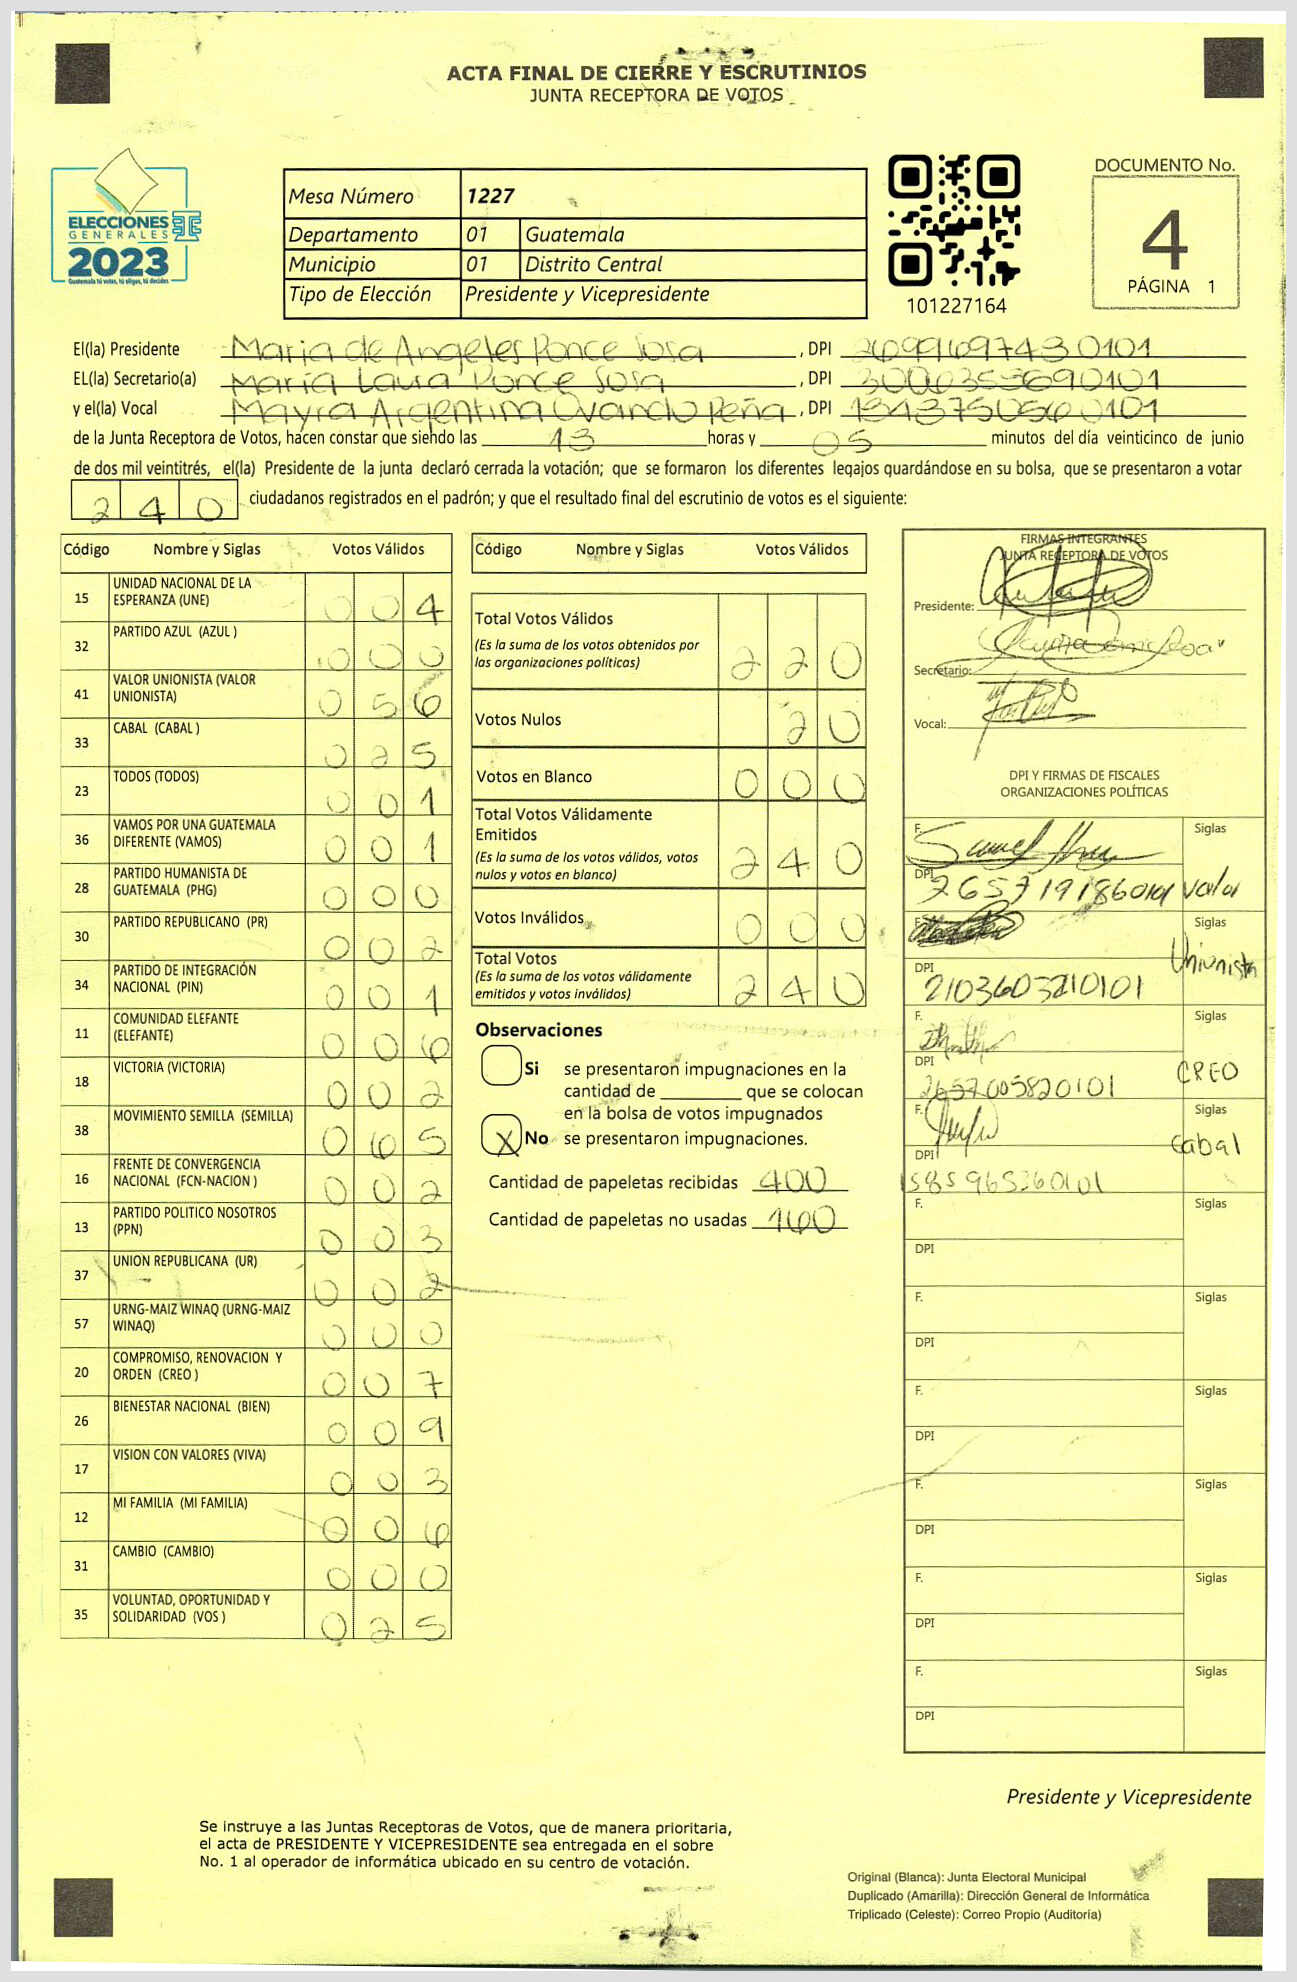 ACTA FINAL DE CIERRE Y ESCRUTINIOS
JUNTA RECEPTORA DE VOTOS
ELECCIONES
GENERALES
2023
Guatemala tú votas, tú eliges, tú decides
Mesa Número 1227
Departamento 01 Guatemala
Municipio 01 Distrito Central
Tipo de Elección Presidente y Vicepresidente
101227164
DOCUMENTO No.
4
PÁGINA 1
El(la) Presidente Maria de Angeles Ponce Sosa, DPI 2699169743 0101
EL(la) Secretario(a) Maria Laura Ponce Sosa, DPI
y el(la) Vocal Mayra Argentina Ovando Peña, DPI
de la Junta Receptora de Votos, hacen constar que siendo las 13 horas y 05 minutos del día veinticinco de junio
de dos mil veintitrés, el(la) Presidente de la junta declaró cerrada la votación; que se formaron los diferentes legajos guardándose en su bolsa, que se presentaron a votar
240 ciudadanos registrados en el padrón; y que el resultado final del escrutinio de votos es el siguiente:
Código Nombre y Siglas Votos Válidos
15 UNIDAD NACIONAL DE LA ESPERANZA (UNE) 004
32 PARTIDO AZUL (AZUL ) 000
41 VALOR UNIONISTA (VALOR UNIONISTA) 056
33 CABAL (CABAL ) 025
23 TODOS (TODOS) 001
36 VAMOS POR UNA GUATEMALA DIFERENTE (VAMOS) 001
28 PARTIDO HUMANISTA DE GUATEMALA (PHG) 000
30 PARTIDO REPUBLICANO (PR) 002
34 PARTIDO DE INTEGRACIÓN NACIONAL (PIN) 001
11 COMUNIDAD ELEFANTE (ELEFANTE) 006
18 VICTORIA (VICTORIA) 002
38 MOVIMIENTO SEMILLA (SEMILLA) 065
16 FRENTE DE CONVERGENCIA NACIONAL (FCN-NACION ) 002
13 PARTIDO POLITICO NOSOTROS (PPN) 003
37 UNION REPUBLICANA (UR) 002
57 URNG-MAIZ WINAQ (URNG-MAIZ WINAQ) 000
20 COMPROMISO, RENOVACION Y ORDEN (CREO ) 007
26 BIENESTAR NACIONAL (BIEN) 009
17 VISION CON VALORES (VIVA) 003
12 MI FAMILIA (MI FAMILIA) 006
31 CAMBIO (CAMBIO) 000
35 VOLUNTAD, OPORTUNIDAD Y SOLIDARIDAD (VOS ) 025
Código Nombre y Siglas Votos Válidos
Total Votos Válidos 220
(Es la suma de los votos obtenidos por
las organizaciones políticas)
Votos Nulos 20
Votos en Blanco 000
Total Votos Válidamente
Emitidos 240
(Es la suma de los votos válidos, votos
nulos y votos en blanco)
Votos Inválidos 000
Total Votos 240
(Es la suma de los votos válidamente
emitidos y votos inválidos)
Observaciones
Si se presentaron impugnaciones en la
cantidad de ________ que se colocan
en la bolsa de votos impugnados
X No se presentaron impugnaciones.
Cantidad de papeletas recibidas 400
Cantidad de papeletas no usadas 160
FIRMAS INTEGRANTES
JUNTA RECEPTORA DE VOTOS
Presidente:
Secretario:
Vocal:
DPI Y FIRMAS DE FISCALES
ORGANIZACIONES POLÍTICAS
F. Siglas
DPI 2657191860101 Valor
F. Siglas
Unionista
DPI 2103603210101
F. Siglas
DPI 2657005820101 CREO
F. Siglas
DPI Cabal
1585965360101
F. Siglas
DPI
F. Siglas
DPI
F. Siglas
DPI
F. Siglas
DPI
F. Siglas
DPI
F. Siglas
DPI
Presidente y Vicepresidente
Se instruye a las Juntas Receptoras de Votos, que de manera prioritaria,
el acta de PRESIDENTE Y VICEPRESIDENTE sea entregada en el sobre
No. 1 al operador de informática ubicado en su centro de votación.
Original (Blanca): Junta Electoral Municipal
Duplicado (Amarilla): Dirección General de Informática
Triplicado (Celeste): Correo Propio (Auditoría)